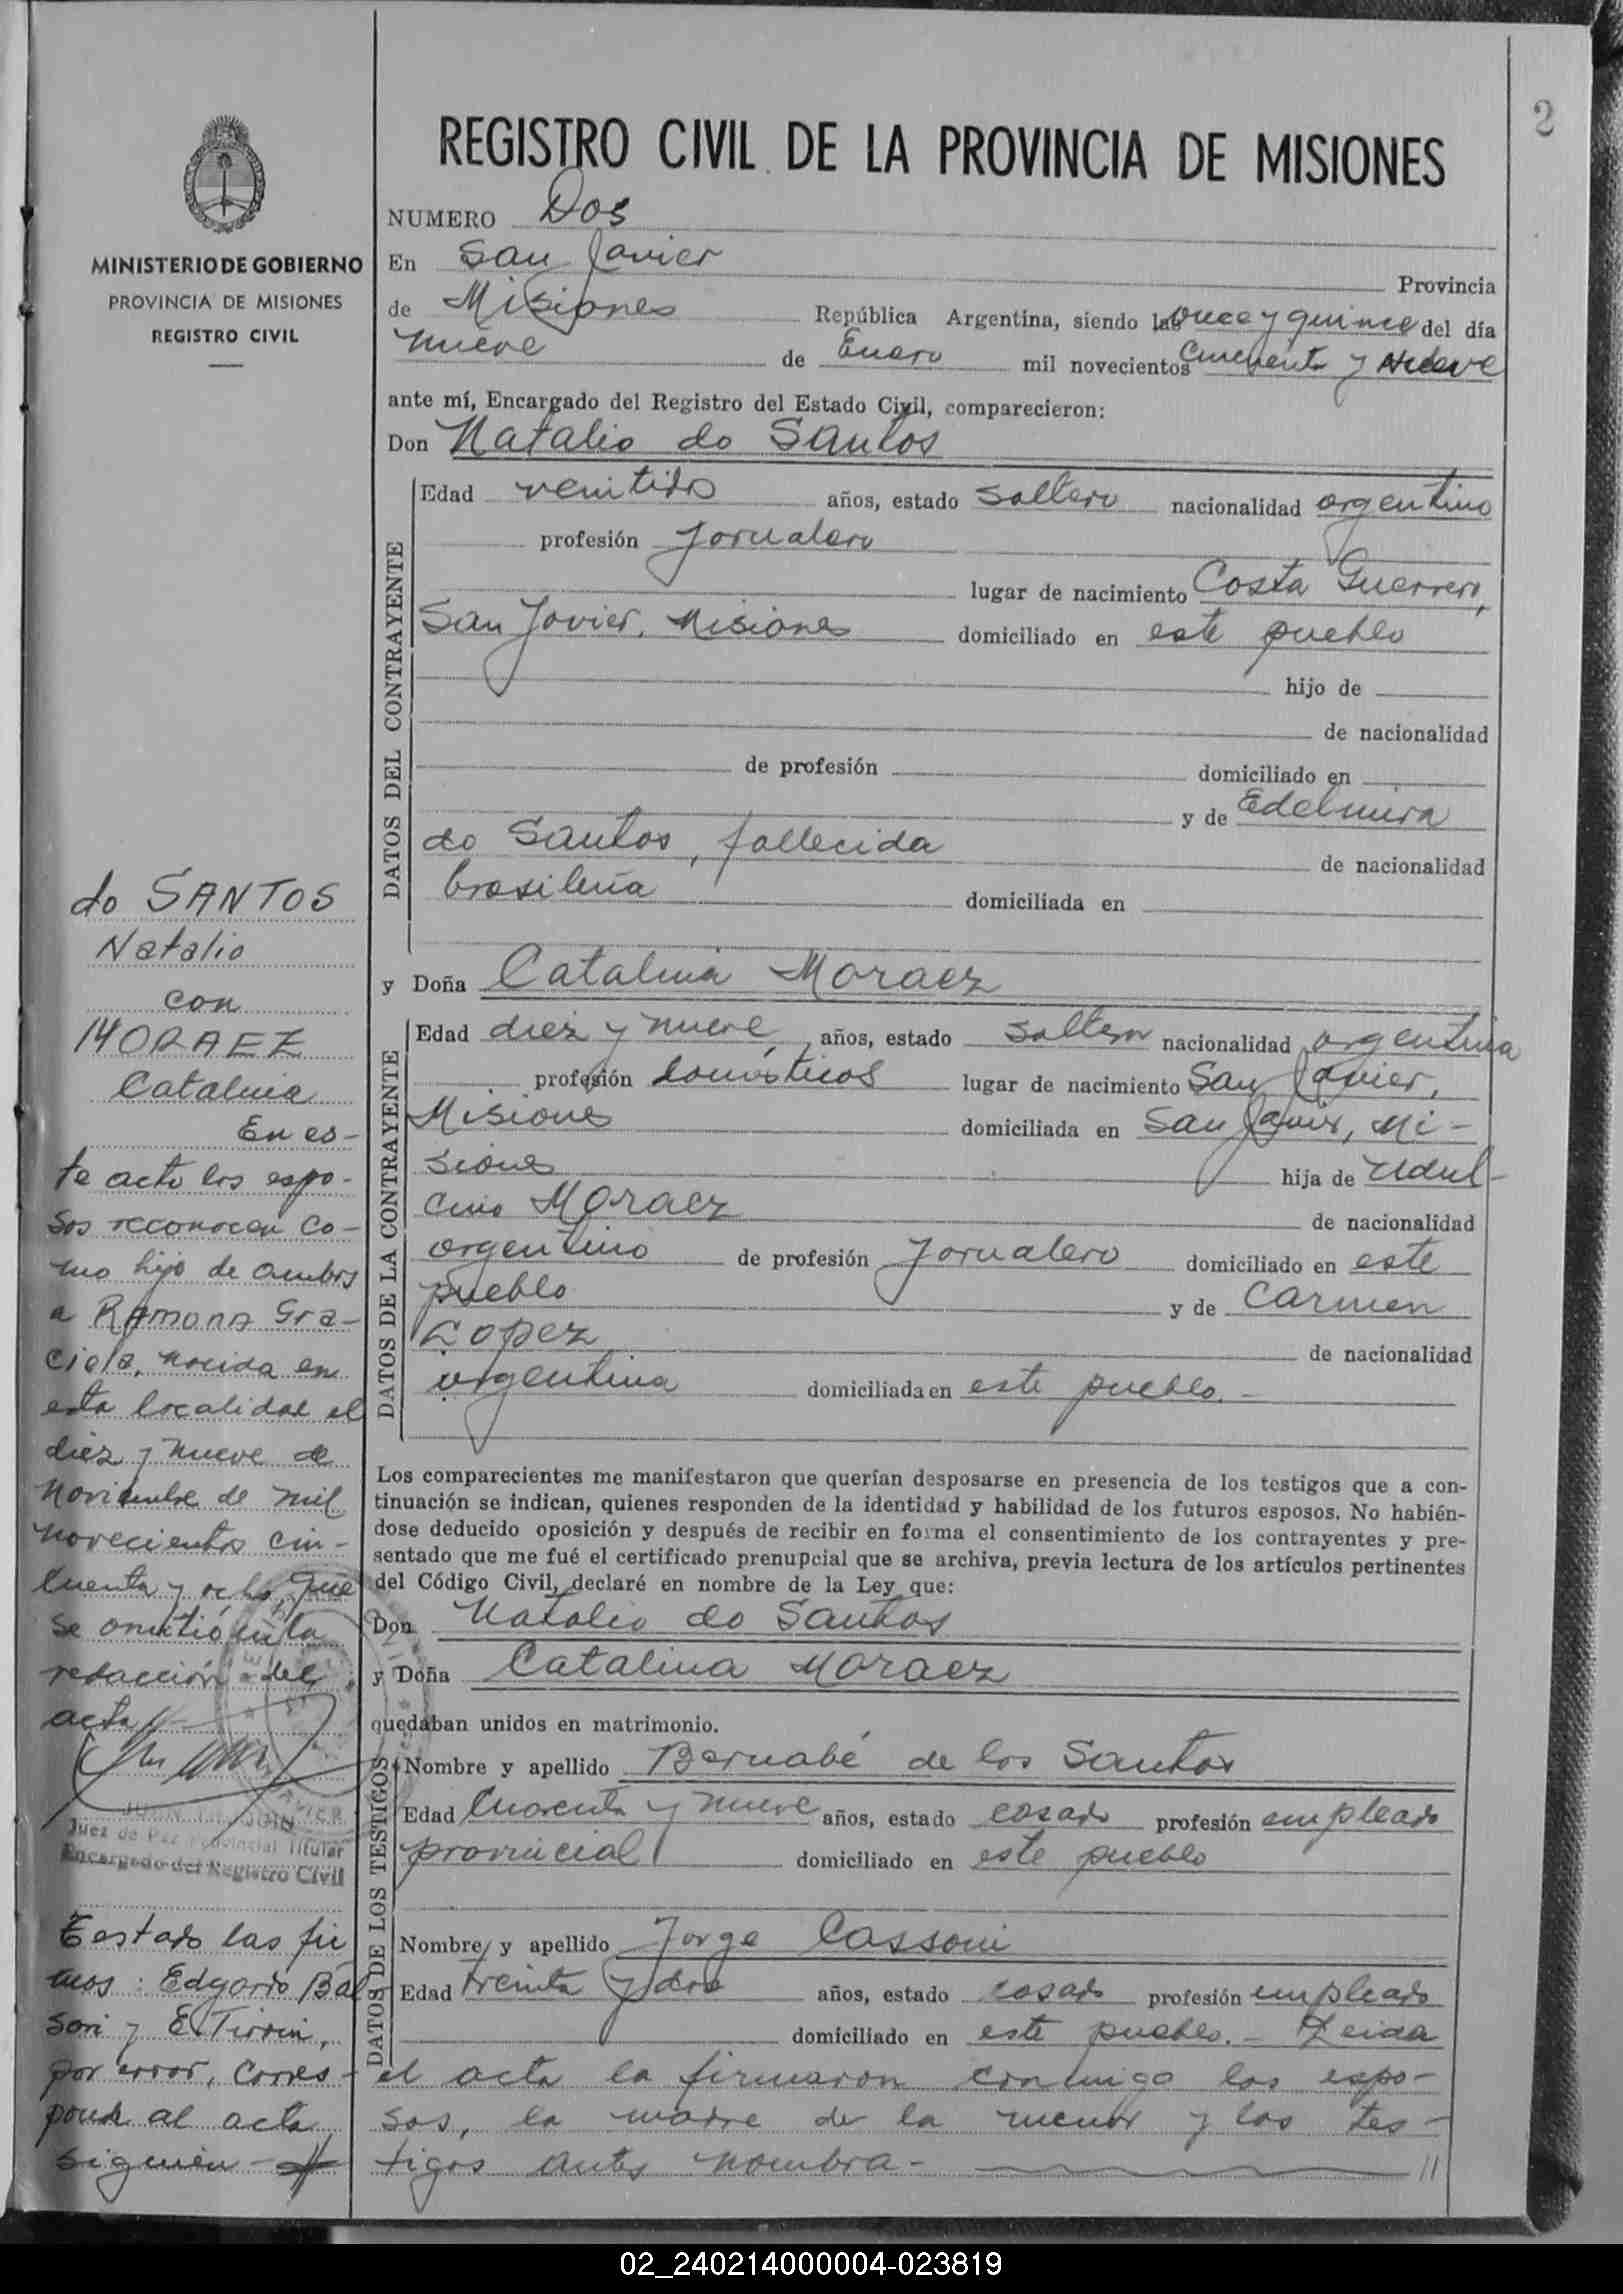 2
REGISTRO CIVIL DE LA PROVINCIA DE MISIONES
MINISTERIO DE GOBIERNO
PROVINCIA DE MISIONES
REGISTRO CIVIL
NUMERO Dos
En San Javier Provincia
de Misiones República Argentina, siendo las once y quince del día
nueve de Enero mil novecientos cincuenta y nueve
ante mí, Encargado del Registro del Estado Civil, comparecieron:
Don Natalio do Santos
DATOS DEL CONTRAYENTE
Edad venitidos años, estado soltero nacionalidad argentino
profesión Jornalero
lugar de nacimiento Costa Guerrero,
San Javier, Misiones domiciliado en este pueblo
hijo de
de nacionalidad
de profesión domiciliado en
y de Edelmira
do Santos, fallecida de nacionalidad
brasileña domiciliada en
y Doña Catalina Moraez
DATOS DE LA CONTRAYENTE
Edad diez y nueve años, estado soltera nacionalidad argentina
profesión domésticos lugar de nacimiento San Javier,
Misiones domiciliada en San Javier, Mi-
siones hija de
Moraez de nacionalidad
argentino de profesión Jornalero domiciliado en este
pueblo y de Carmen
Lopez de nacionalidad
argentina domiciliada en este pueblo.-
Los comparecientes me manifestaron que querían desposarse en presencia de los testigos que a con-
tinuación se indican, quienes responden de la identidad y habilidad de los futuros esposos. No habién-
dose deducido oposición y después de recibir en forma el consentimiento de los contrayentes y pre-
sentado que me fué el certificado prenupcial que se archiva, previa lectura de los artículos pertinentes
del Código Civil, declaré en nombre de la Ley que:
Don Natalio do Santos
y Doña Catalina Moraez
quedaban unidos en matrimonio.
DATOS DE LOS TESTIGOS
Nombre y apellido Bernabé de los Santos
Edad Cuarenta y nueve años, estado casado profesión empleado
provincial domiciliado en este pueblo
Nombre y apellido Jorge Cassoni
Edad treinta y dos años, estado casado profesión empleado
domiciliado en este pueblo.- Leida
el acta la firmaron conmigo los espo-
sos, la madre de la menor y los tes-
tigos antes nombra- //
do SANTOS
Natalio
con
MORAEZ
Catalina
En es-
te acto los espo-
sos reconocen co-
mo hijo de ambos
a Ramona Gra-
ciela, nacida en
esta localidad el
diez y nueve de
Noviembre de mil
novecientos cin-
cuenta y ocho, que
se omitió en la
redacción del
acta//-
Juez de Paz Provincial Titular
Encargado del Registro Civil
Testado las fir
mas: Edgardo Bal
sori y E. Tirrin,
por error, corres-
ponde al acta
siguien-
02_240214000004-023819